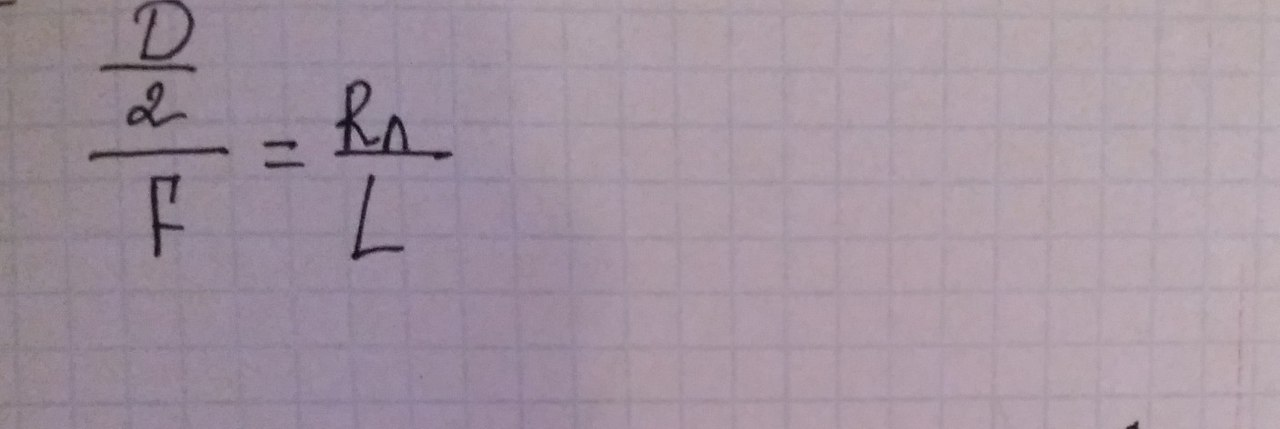 D
2
F
=
Rл
L